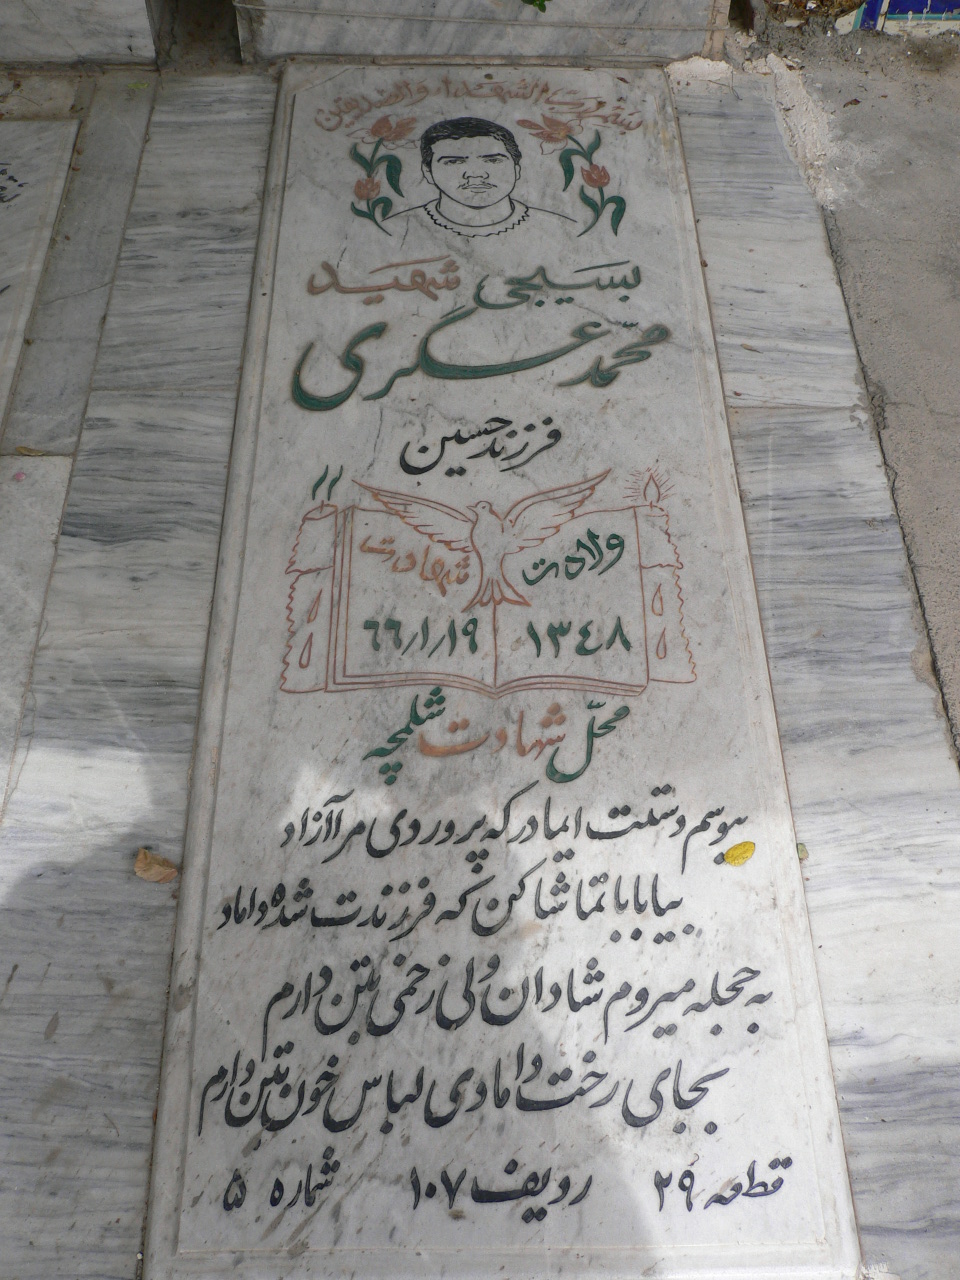 بسم رب الشهداء و الصدیقین
بسیجی شهید
محمّد عسگری
فرزند حسین
ولادت شهادت
۱۳٤۸ ۶۶/۱/۱۹
محلّ شهادت شلمچه
ببوسم دستت ایمادر که پروردی مرا آزاد
بیا بابا تماشا کن که فرزندت شده داماد
به حجله میروم شادان ولی زخمی بتن دارم
بجای رخت دامادی لباس خون بتن دارم
قطعه ۲۹ ردیف ۱۰۷ شماره ۵